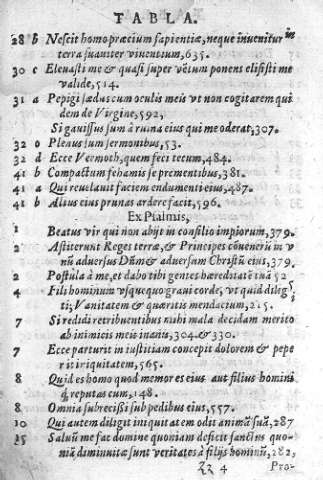 TABLA.
28 b Nescit homo præcium sapientiæ, neque inuenitur in
terra suauiter viuentium, 635.
30 c Eleuasti me & quasi super vẽtum ponens elisisti me
valide, 514.
31 a Pepigi fædus cum oculis meis vt non cogitarem qui
dem de Virgine, 592,
Si gauissus sum à ruina eius qui me oderat, 307.
32 o Plenus sum sermonibus, 53.
32 d Ecce Vermoth, quem feci tecum, 484.
41 b Compactum se squamis se prementibus, 381.
41 a Qui reuelauit faciem endumenti eius, 487.
41 b Alius eius prunas ardere facit, 596.
Ex Psalmis,
1 Beatus vir qui non abijt in consilio impiorum, 379.
2 Astiterunt Reges terræ, & Principes cõuenerũt in v
nũ aduersus Dñm & aduersum Christũ eius, 379.
2 Postula à me, et dabo tibi gentes hæreditatẽ tuã 52
4 Filij hominum vsquequo graui corde, vt quid diligi
ti, Vanitatem & quæritis mendacium, 215.
7 Si redidi retribuentibus mihi mala decidam merito
ab inimicis meis inanis, 304. & 330.
7 Ecce parturit in iustitiam concepit dolorem & pepe
rit iniquitatem, 565.
8 Quid es homo quod memor es eius aut filius homini
q̃ reputas cum, 148.
8 Omnia subrecisti sub pedibus eius, 557.
10 Qui autem diligit iniquitatem odit animã suã, 287
15 Saluũ me fac domine quoniam deficit sanctus quo-
niã diminuitæ sunt veritates à filijs hominũ, 282,
4 Pro-